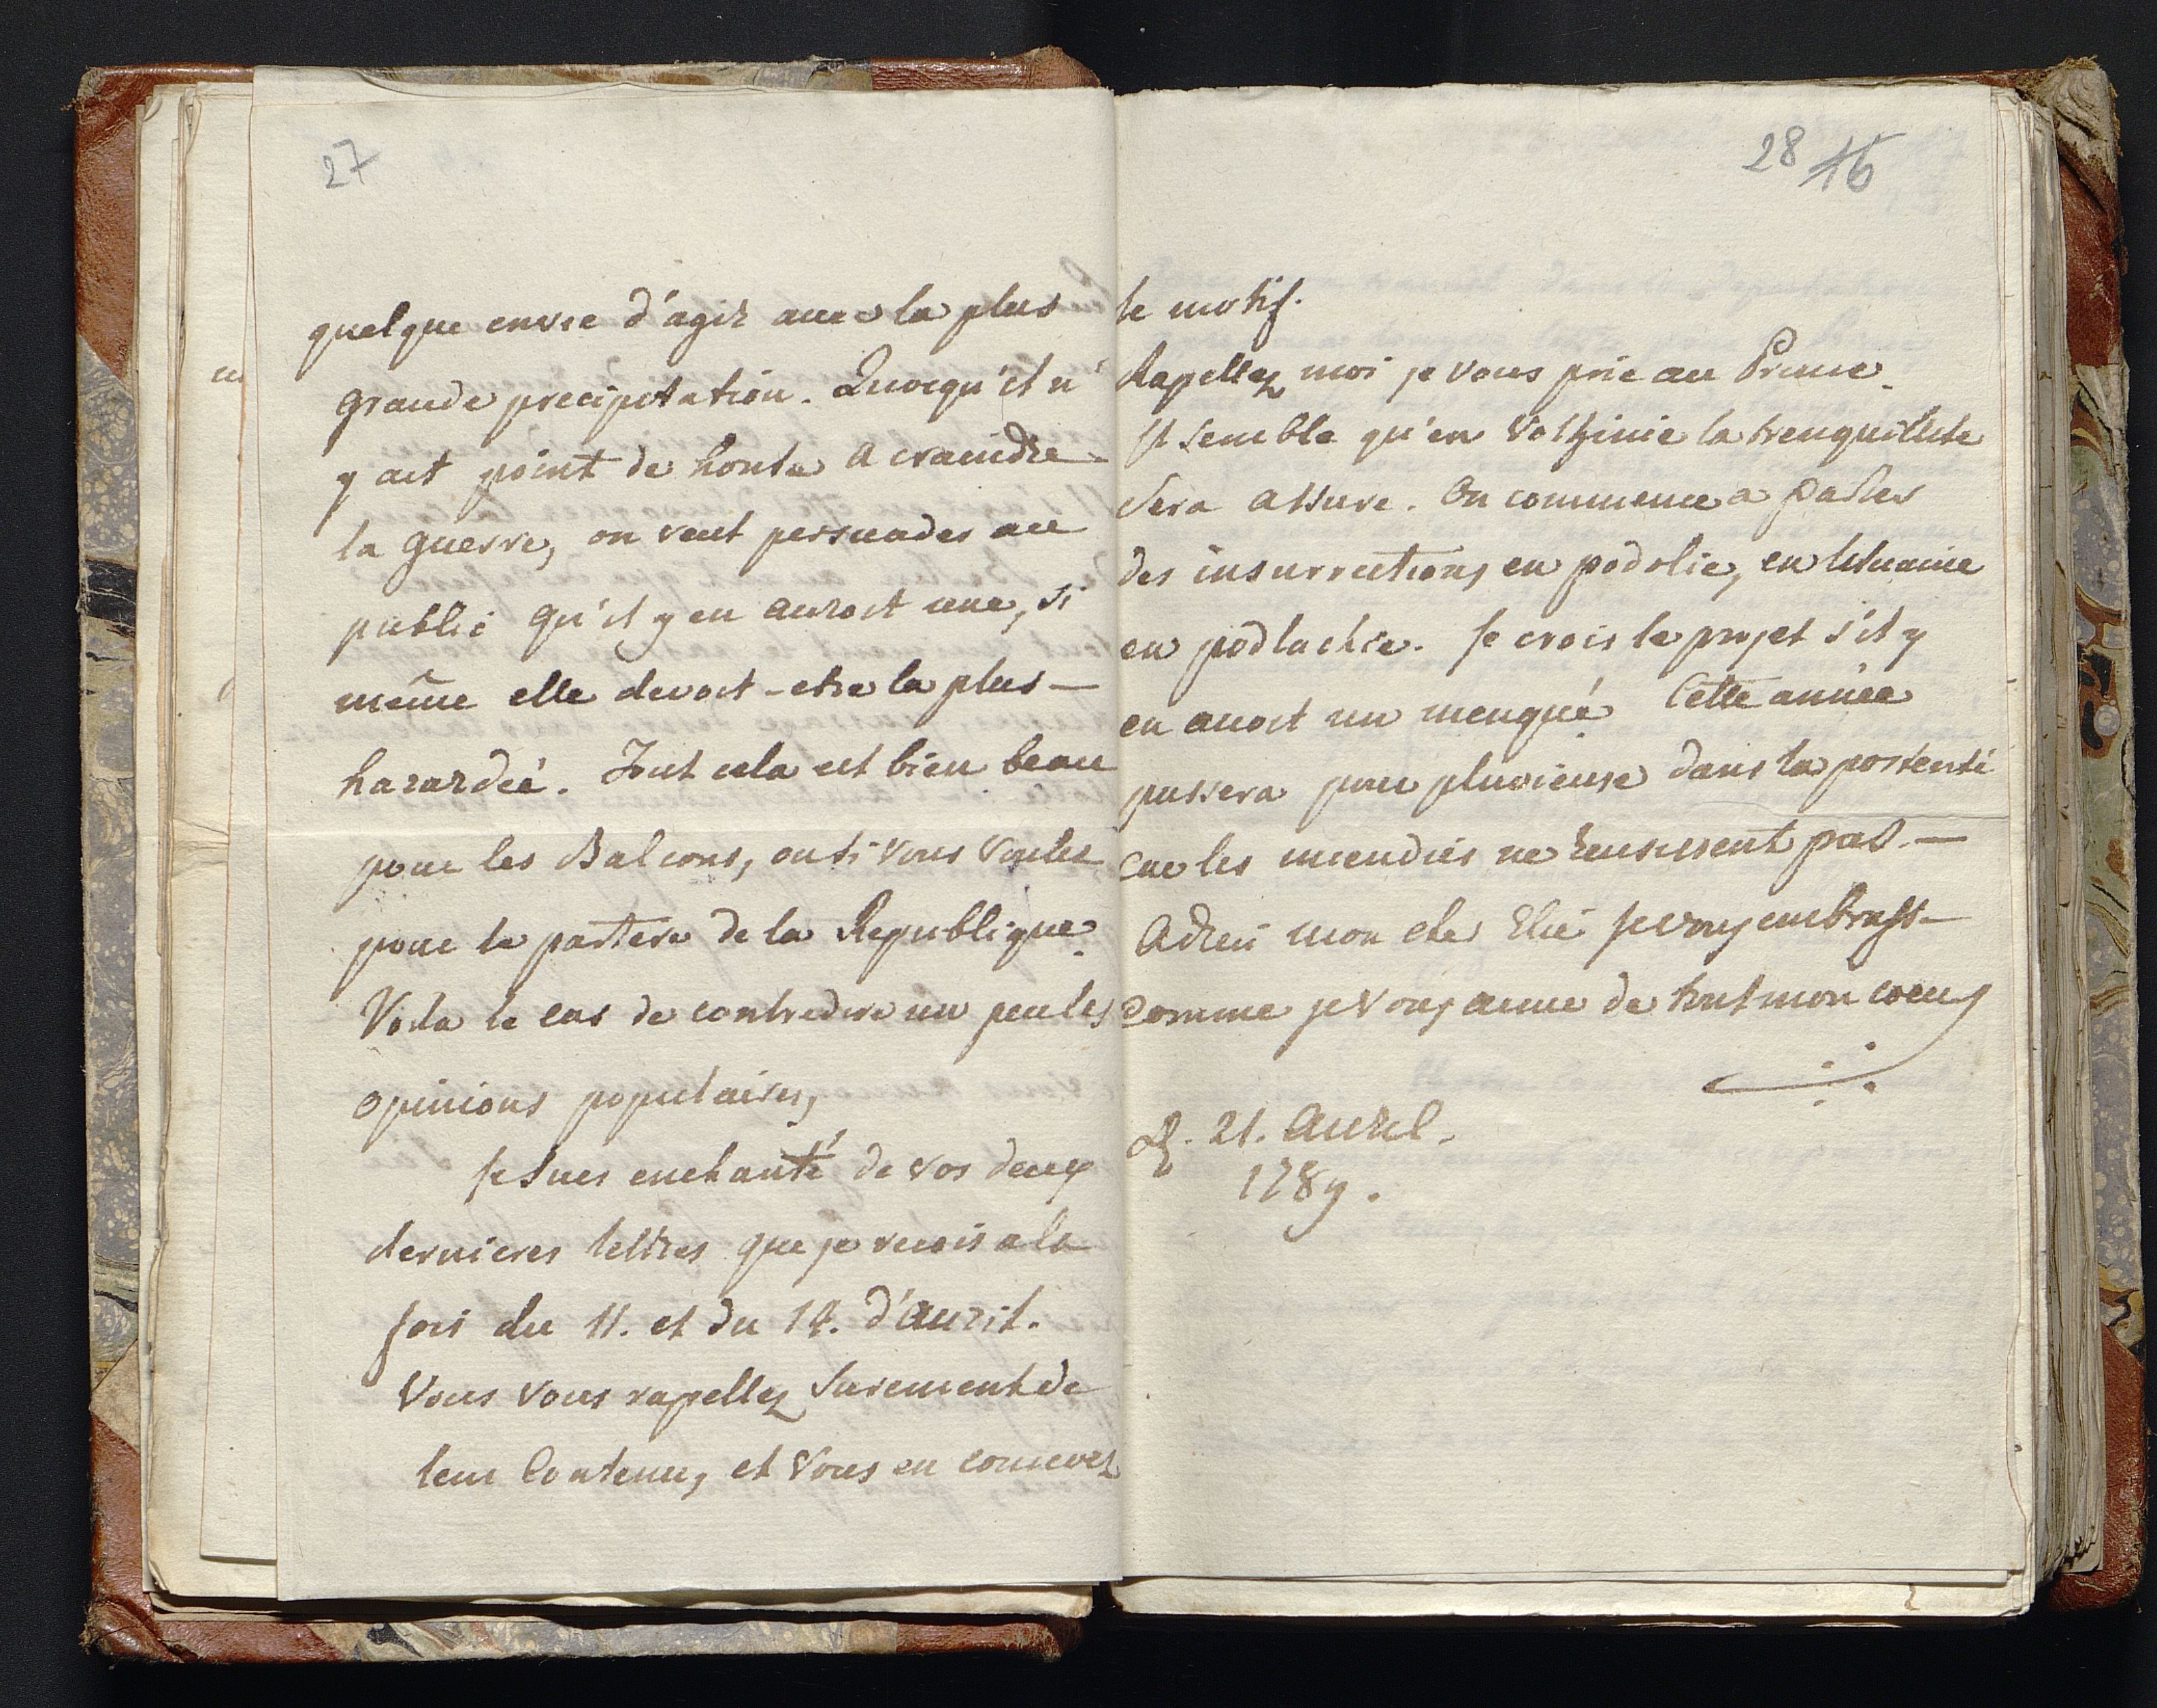 27
quelque envie d'agir avec la plus
grande precipitation. Quoiqu'il n'
y ait point de honte a craindre
la guerre, on veut persuader au
public qu'il y en auroit une, si
même elle devoit-etre la plus—
hazardeé. Tout cela est bien beau
pour les Balcons, ou si vous voulez
pour le partere de la Republique.
Voila le cas de contredire un peu les
opinions populaires,
Je suis enchanté de vos deux
dernieres lettres que je recois a la
fois du 11. et du 14. d'avril.
Vous vous rapellez surement de
leur Contenu, et vous en concevez
28 16
le motif.
Rapellez moi je vous prie au Prince.
Il semble qu'en Volhinie la trenquillite
sera assure. On commence a parler
des insurrections en podolie, en Ukraine
en podlachie. Je crois le projet s'il y
en avoit un menqué. Cette année
passera pour pluvieuse dans la posterité
car les incendies ne reusissent pas.—
Adieu mon cher Elie je vous embrasse
comme je vous aime de tout mon coeur
21. Avril.
1789.